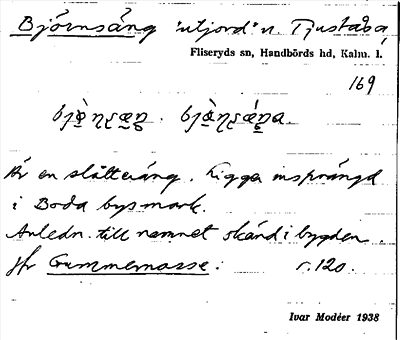 Björnsäng "utjord" v. Tjustaå
Fliseryds sn, Handbörds hd, Kalm. l.
169
Är en slåtteräng. Ligger insprängd
i Boda bys mark.
Anledn. till namnet okänd i bygden.
Jfr Gummemosse: r. 120.
Ivar Modéer 1938